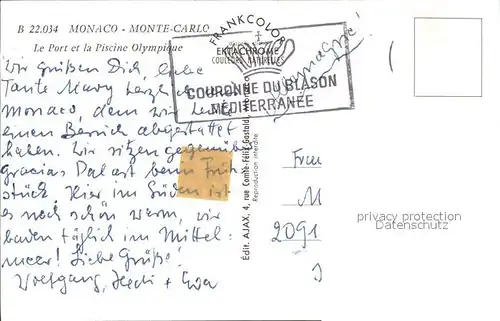 B 22.034 MONACO - MONTE-CARLO
Le Port et la Piscine Olympique
FRANKCOLOR
EKTACHROME
COULEURS NATURELLES
COURONNE DU BLASON
MÉDITERRANÉE
Wir grüßen Dich, liebe
Tante Mary herzlich
Monaco, dem wir heute
einen Besuch abgestattet
haben. Wir sitzen gegenüber
Gracias Palast beim Früh-
stück. Hier im Süden ist
es noch schön warm, wir
baden täglich im Mittel-
meer! Liebe Grüße!
Wolfgang, Hedi + Eva
Édit. AJAX, 4, rue Comte-Félix-Gastaldi, Monaco
Reproduction interdite
Frau
M
2091
privacy protection
Datenschutz